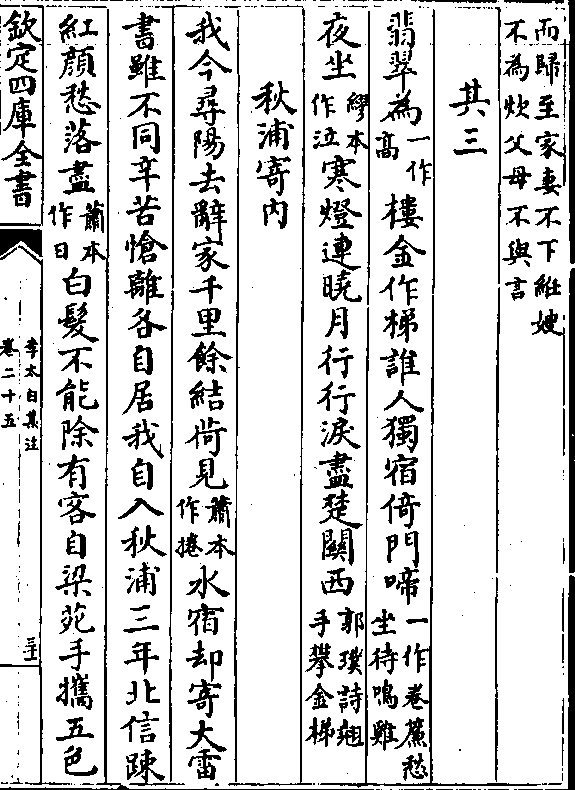 而歸至家妻不下絍嫂
不為炊父母不與言
其三
翡翠為一作高樓金作梯誰人獨宿倚門啼一作卷簾愁坐待鳴雞
夜坐繆本作泣寒燈連曉月行行淚盡楚關西郭璞詩翹手攀金梯
秋浦寄内
我今尋陽去辭家千里餘結荷見蕭本作捲水宿却寄大雷
書雖不同辛苦愴離各自居我自入秋浦三年北信踈
紅顔愁落盡蕭本作日白髮不能除有客自梁苑手攜五色
欽定四庫全書
李太白集注
卷二十五